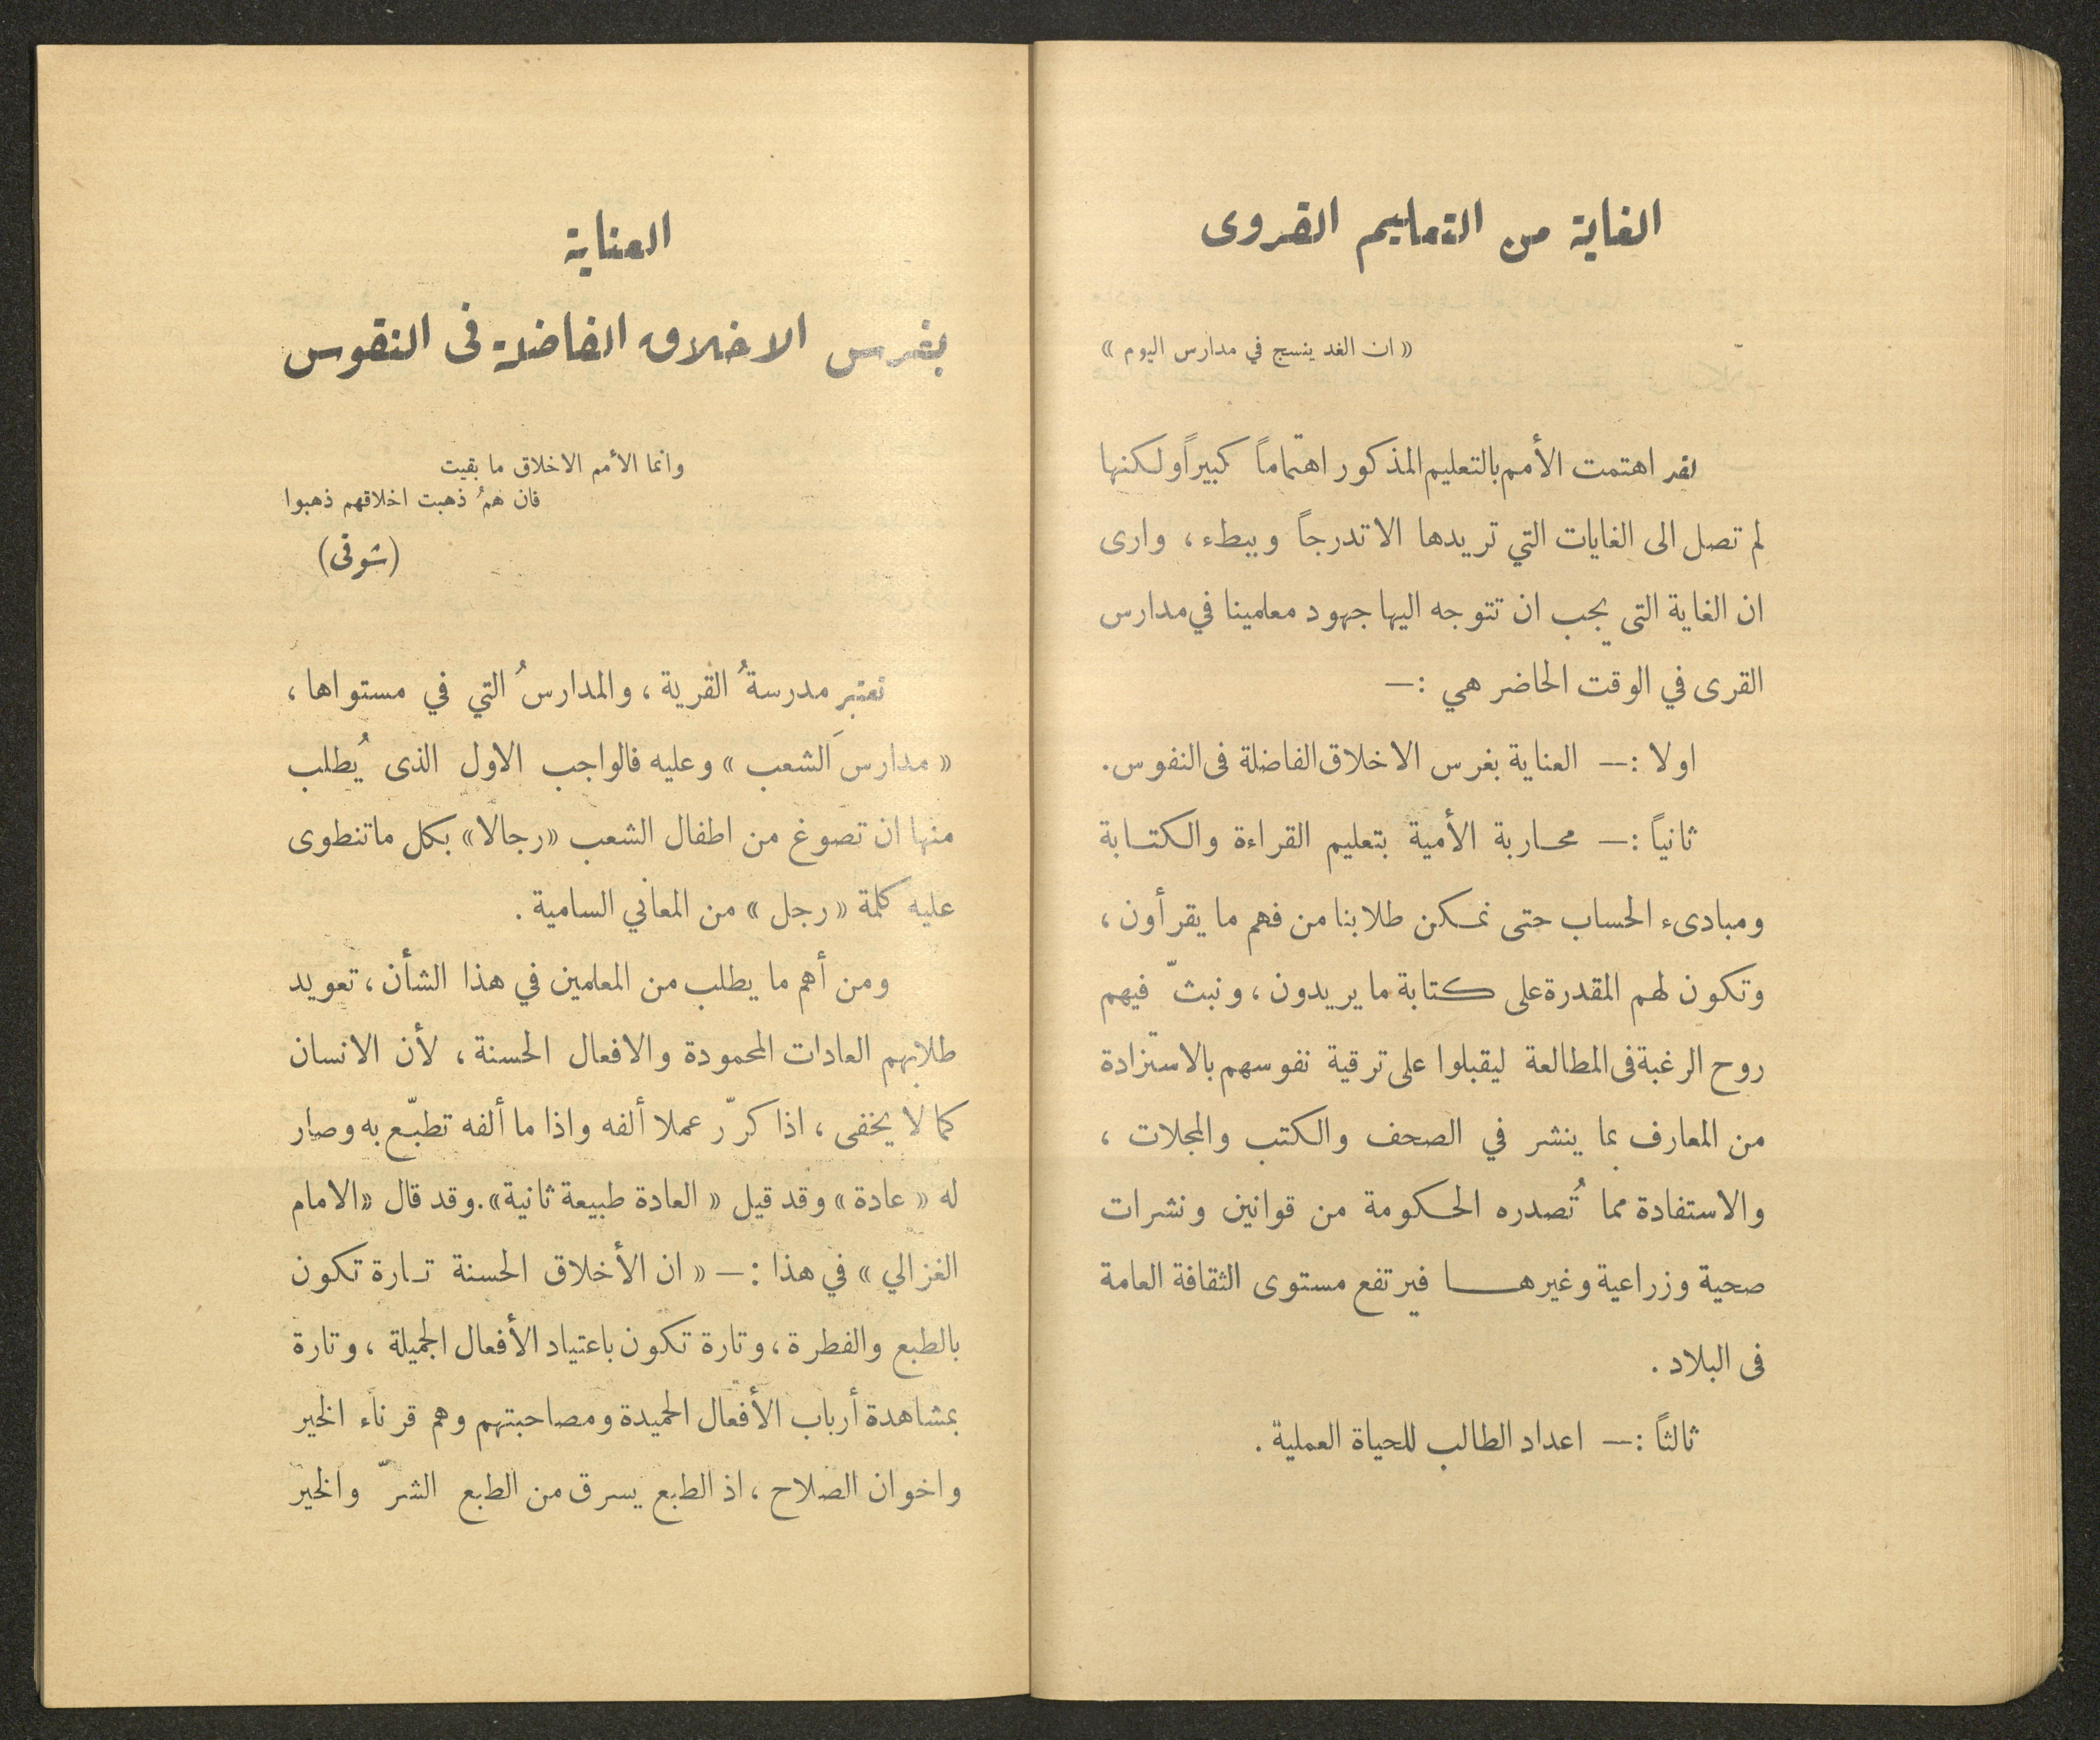 الغاية من التعليم القروى
« ان الغد ينسج في مدارس اليوم »
لقد اهتمت الأمم بالتعليم المذكور اهتماماً كبيراً ولكنها
لم تصل الى الغايات التي تريدها الا تدرجاً وببطء ، وارى
ان الغاية التى يجب ان تتوجه اليها جهود معلمينا في مدارس
القرى في الوقت الحاضر هي :—
اولا :— العناية بغرس الاخلاق الفاضلة فى النفوس .
ثانياً :— محاربة الأمية بتعليم القراءة والكتابة
ومبادىء الحساب حتى نمكن طلابنا من فهم ما يقرأون ،
وتكون لهم المقدرة على كتابة ما يريدون ، ونبثّ فيهم
روح الرغبة فى المطالعة ليقبلوا على ترقية نفوسهم بالاستزادة
من المعارف بما ينشر في الصحف والكتب والمجلات ،
والاستفادة مما تُصدره الحكومة من قوانين ونشرات
صحية وزراعية وغيرها فيرتفع مستوى الثقافة العامة
فى البلاد .
ثالثاً :— اعداد الطالب للحياة العملية .
العناية
بغرس الاخلاق الفاضلة فى النفوس
وانما الأمم الاخلاق ما بقيت
فان همُ ذهبت اخلاقهم ذهبوا
(شوقى)
تعتبر مدرسةُ القرية ، والمدارسُ التي في مستواها ،
« مدارسَ الشعب » وعليه فالواجب الاول الذى يُطلب
منها ان تصوغ من اطفال الشعب «رجالا» بكل ماتنطوى
عليه كلمة « رجل » من المعاني السامية .
ومن أهم ما يطلب من المعلمين في هذا الشأن ، تعويد
طلابهم العادات المحمودة والافعال الحسنة ، لأن الانسان
كما لا يخفى ، اذا كرّر عملا ألفه واذا ما ألفه تطبّع به وصار
له « عادة » وقد قيل « العادة طبيعة ثانية». وقد قال «الامام
الغزالي » في هذا :— « ان الأخلاق الحسنة تارة تكون
بالطبع والفطرة ، وتارة تكون باعتياد الأفعال الجميلة ، وتارة
بمشاهدة أرباب الأفعال الحميدة ومصاحبتهم وهم قرناء الخير
واخوان الصلاح ، اذ الطبع يسرق من الطبع الشرّ والخير